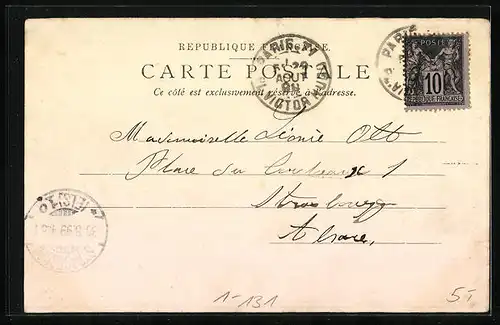 REPUBLIQUE FRANÇAISE.
CARTE POSTALE
Ce côté est exclusivement réservé à l'adresse.
PARIS
AOUT
POSTE
10
REPUBLIQUE FRANÇAISE
PARIS
Mademoiselle Léonie Ott
Place du 1
Strasbourg
Alsace,
1-131
5T